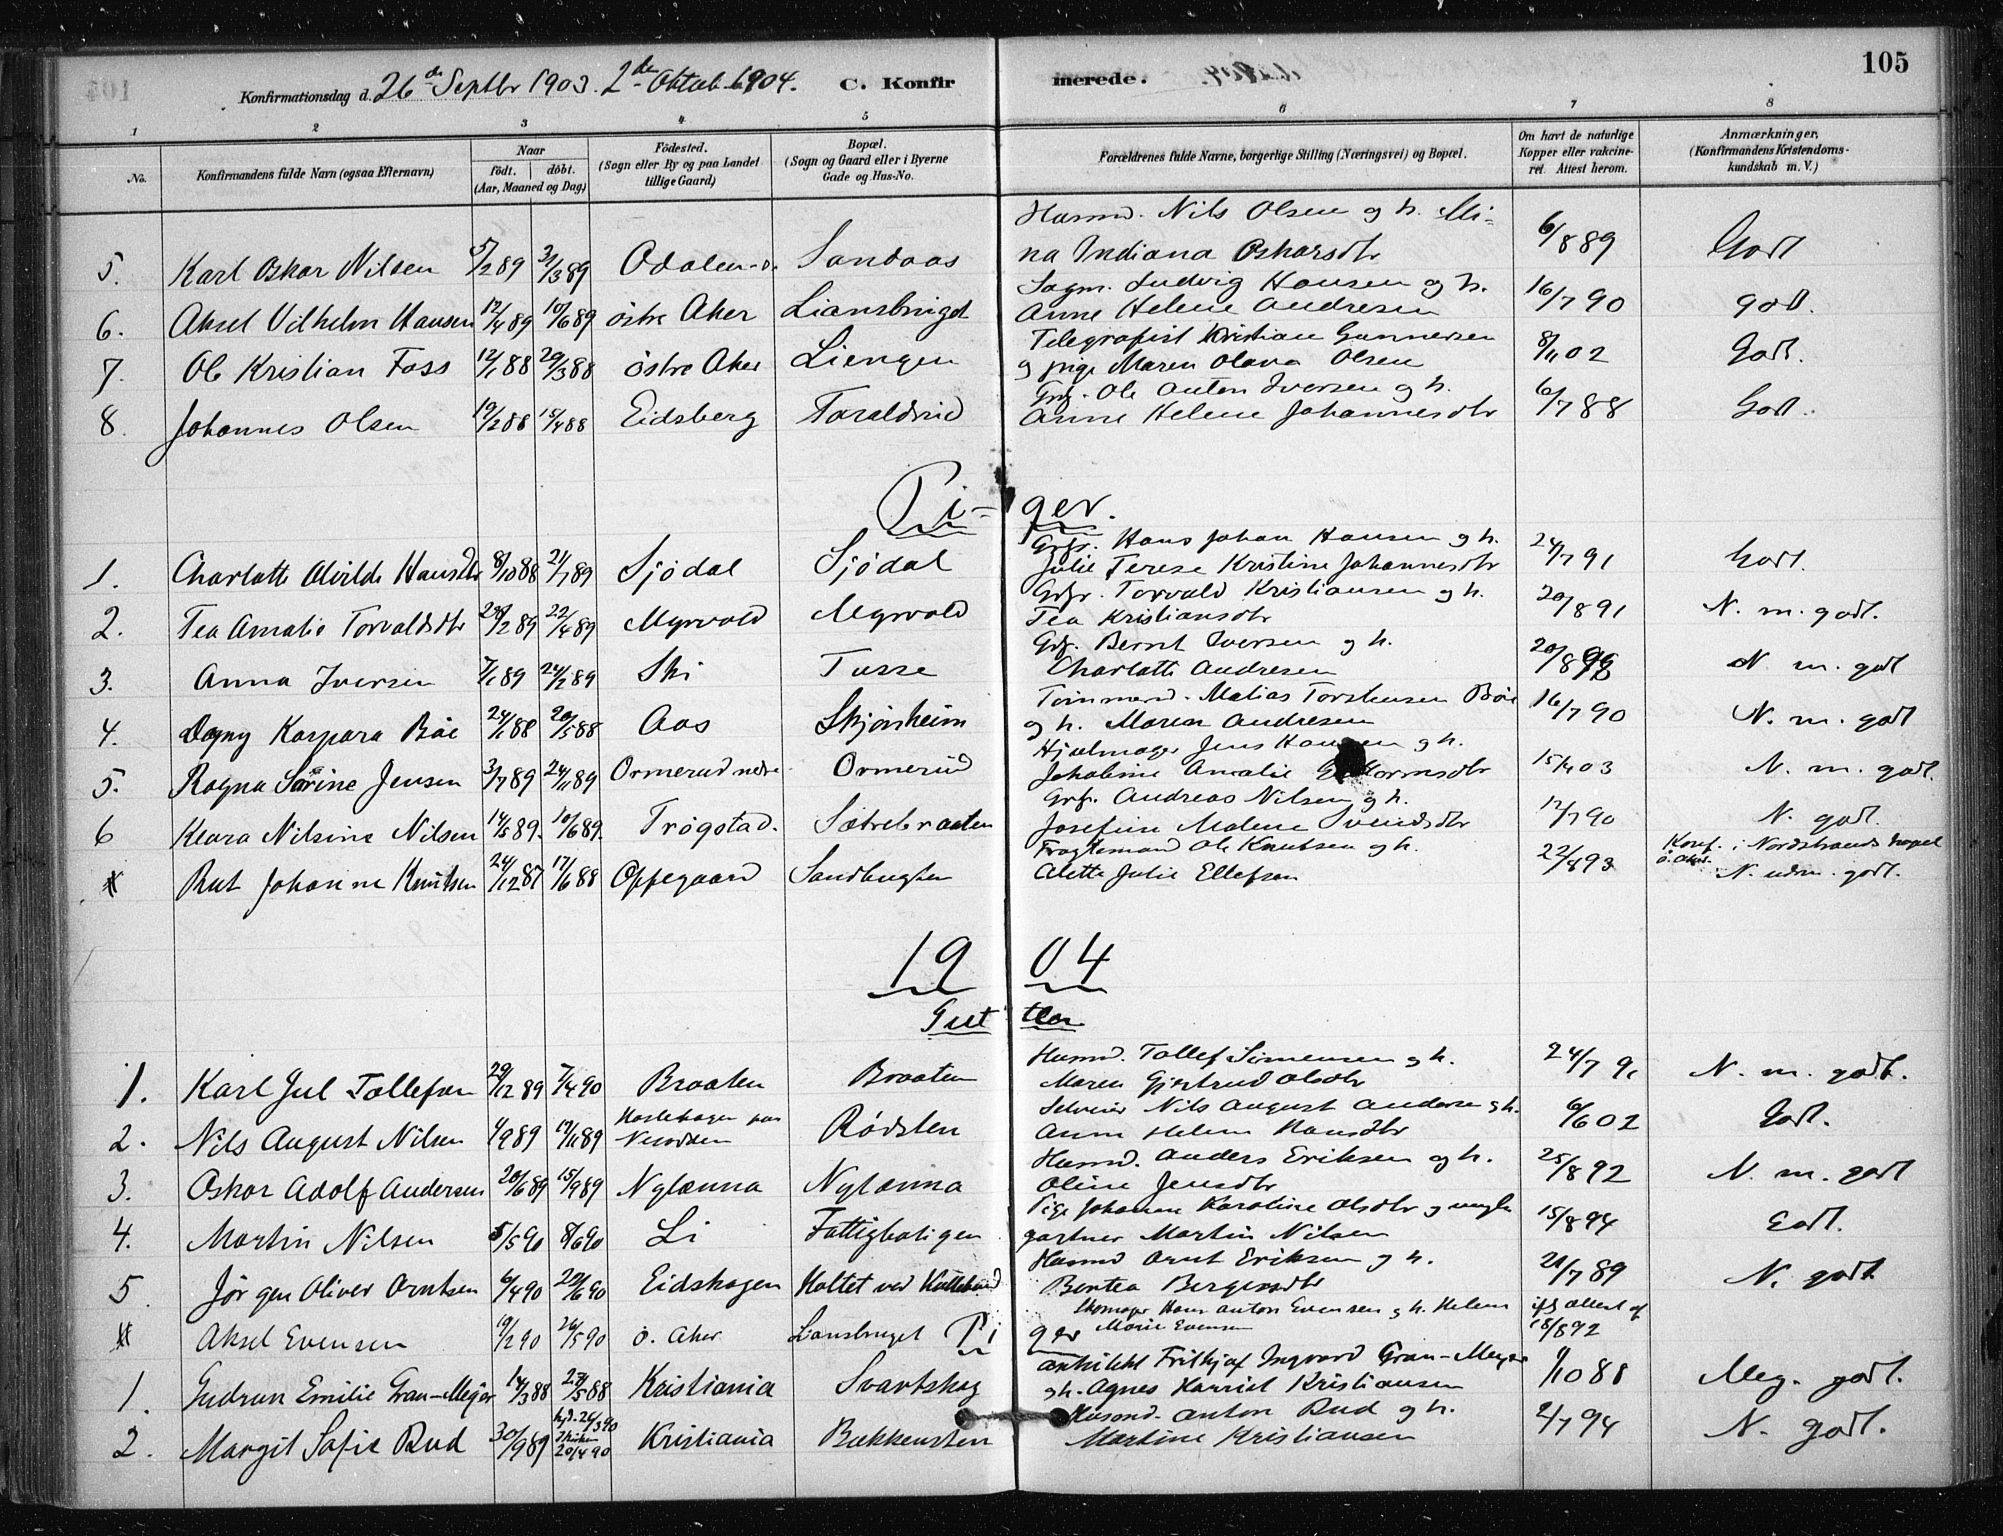 105
Konfirmationsdag d. 26de Septbr 1903. 2de Oktob. 1904. C. Konfirmerede.
1 2 3 4 5 6 7 8
No. Konfirmandens fulde Navn (ogsaa Efternavn) Naar født. døbt. (Aar, Maaned og Dag) Fødested. (Sogn eller By og paa Landet tillige Gaard) Bopæl. (Sogn og Gaard eller i Byerne Gade og Hus-No. Forældrenes fulde Navne, borgerlige Stilling (Næringsvei) og Bopæl. Om havt de naturlige Kopper eller vakcineret. Attest herom. Anmærkninger, (Konfirmandens Kristendomskundskab m. V.)
5. Karl Oskar Nilsen 5/2 89 31/3 89 Odalen Sandaas Husmd. Nils Olsen og h. Mina Indiana Oskarsdtr 6/8 89 Godt
6. Aksel Vilhelm Hansen 12/4 89 10/6 89 østre Aker Liansbruget Sagm. Ludvig Hansen og h. Anne Helene Andresen 16/7 90 godt.
7. Ole Kristian Foss 12/1 88 29/3 88 østre Aker Liengen Telegrafist Kristian Gunnersen og pige Maren Olava Olsen 8/11 02 Godt.
8. Johannes Olsen 19/2 88 15/4 88 Eidsberg Toraldrud Ole Anton Iversen og h. Anne Helene Johannesdtr 6/7 88 Godt.
Pi-ger.
1. Charlotte Alvilde Hansdtr 8/10 88 21/7 89 Sjødal Sjødal Grbr. Hans Johan Hansen og h. Julie Terese Kristine Johannesdtr 24/7 91 Godt.
2. Tea Amalie Torvaldsdtr 22/4 89 Myrvold Myrvold Grbr. Torvald Kristiansen og h. Tea Kristiansdtr 20/8 91 N. m. godt.
3. Anna Iversen 7/1 89 24/2 89 Ski Tusse Grbr. Bernt Iversen og h. Charlotte Andresen N. m. godt
4. Dagny Kaspara Bøe 24/1 88 20/5 88 Aas Skjønheim Tømmermd. Matias Torstensen Bøe og h. Maren Andresen 16/7 90 N. m. godt
5. Ragna Sørine Jensen 3/7 89 24/11 89 Ormerud nedre Ormerud Hjulmager Jens Hansen og h. Jakobine Amalie Guttormsdtr 15/4 03 N. m. godt.
6 Klara Nilsine Nilsen 14/5 89. 10/6 89. Trøgstad. Sætrebraaten Grbr. Andreas Nilsen og h. Josefine Malene Svendsdtr 12/7 90 N. godt.
Rut Johanne Knutsen 24/12 87 17/6 88 Oppegaard Sandbugten Fragtemand Ole Knutsen og h. Alette Julie Ellefsen 22/4 93 Konf. i Nordstrands kapel ø. Aker. N. udm. godt.
1904
Gutter
1. Karl Jul Tollefsen 29/12 89 7/4 90 Braaten Braaten Husmd. Tollef Simensen og h. Maren Gjertrud Olsdtr 24/7 91 N. m. godt.
2. Nils August Nilsen 1/9 89 17/11 89 Haslehagen paa Nesodden Rødsten Selveier Nils August Anderse og h. Anne Helene Hansdtr 6/6 02 Godt.
3. Oskar Adolf Andersen 20/6 89 15/9 89 Nylænna Nylænna Husmd. Anders Eriksen og h. Oline Jensdtr 25/8 92 N. m. godt
4. Martin Nilsen 5/5 90 8/6 90 Li Fattigboligen Pige Johanne Karoline Olsdtr og ungk. gartner Martin Nilsen 15/8 94 Godt.
5. Jørgen Oliver Arntsen 6/4 90 29/6 90 Eidshagen Holtet ved Kullebund Husmd Arnt Eriksen og h. Bentea Bergersdtr 21/7 89 N. godt
Aksel Evensen 19/2 90 26/5 90 ø. Aker Liansbruget Skomager Hans Anton Evensen og h. Helene Marie Evensen ifg attest af 18/8 92
Piger
1. Gudrun Emilie Gran-Mejer 14/3 88 29/5 88 Kristiania Svartskog arkitekt Fritkjof Ingvard Gran-Mejer og h. Agnes Harriet Kristiansen 9/10 88 Meg. godt.
2. Margit Sofie Rud 30/9 89 hjd. 26/3 90 i kirken 20/4 90 Kristiania Bekkensten Husmd. Anton Rud og h. Martine Kristiansen 2/7 94 N. godt.